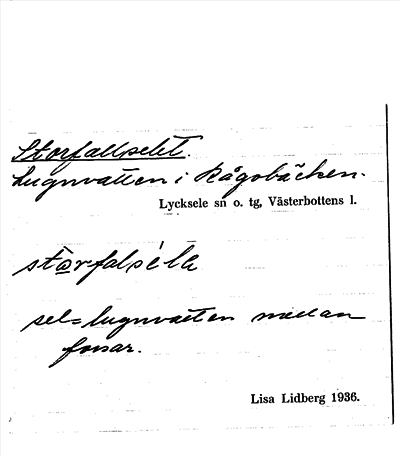 Storfallselet.
Lugnvatten i Rågobäcken.
Lycksele sn o. tg, Västerbottens l.
sel = lugnvatten medan
forsar.
Lisa Lidberg 1936.